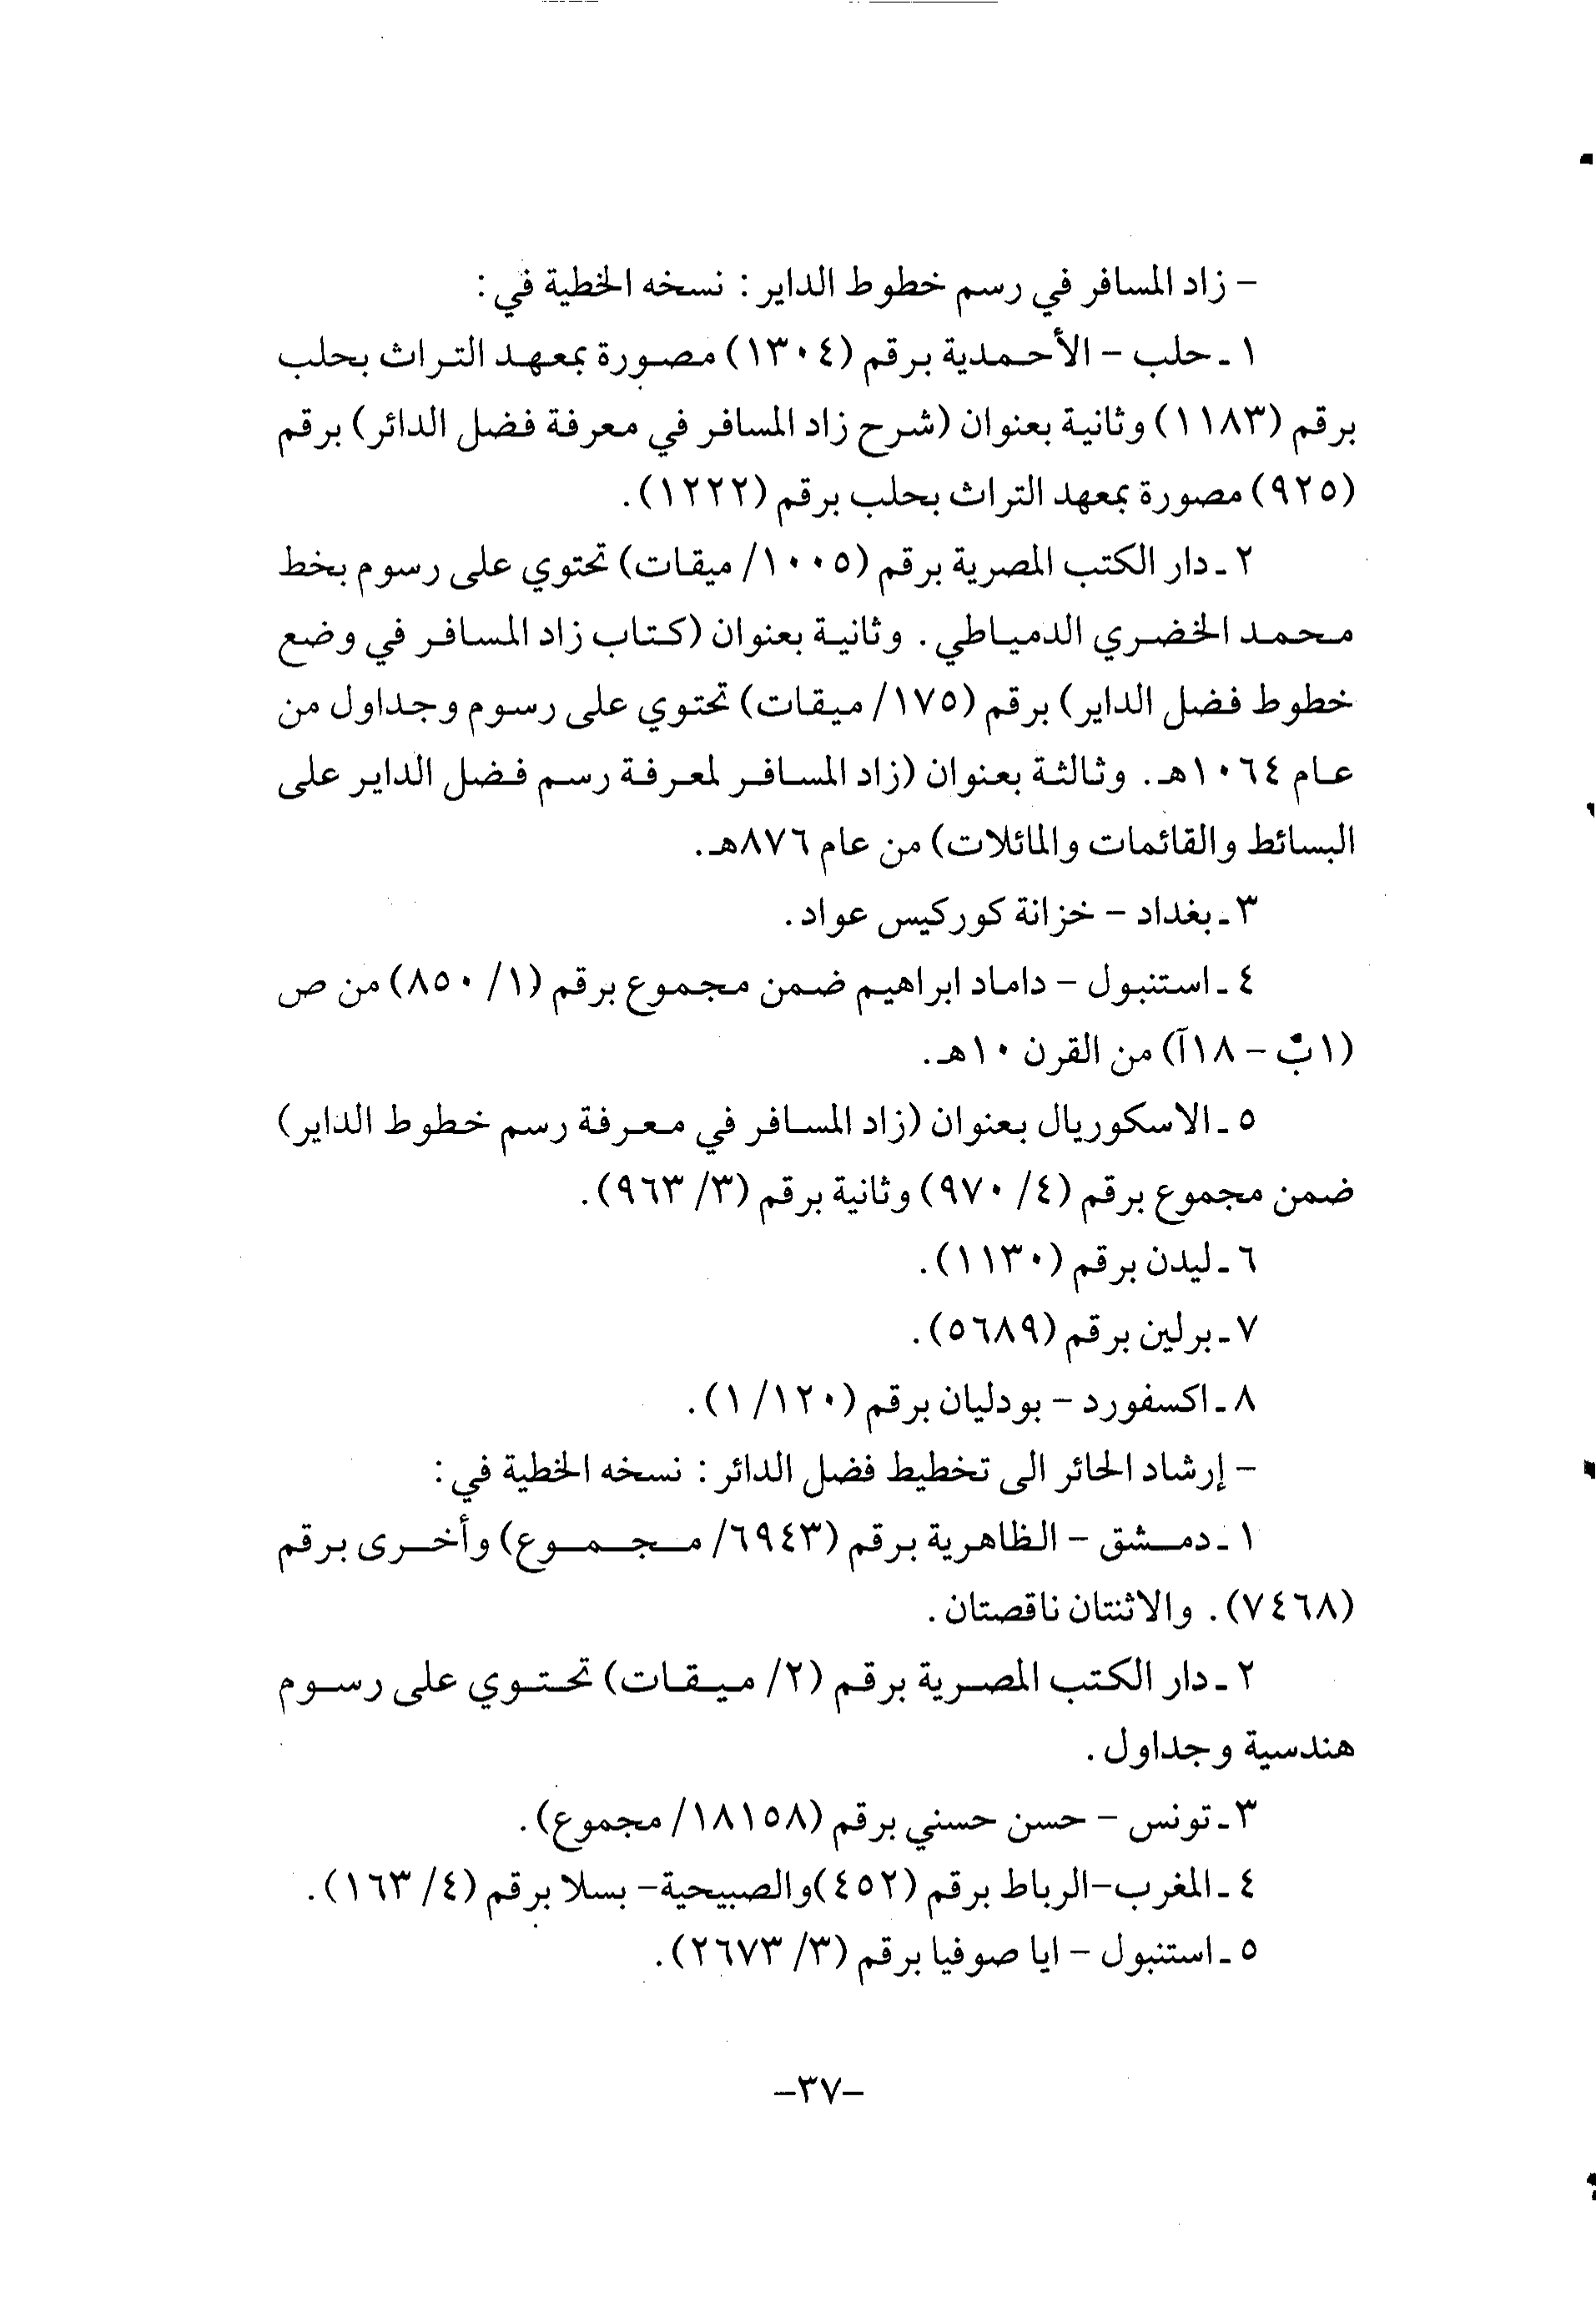 – زاد المسافر في رسم خطوط الداير : نسخه الخطية في :
١ ـ حلب – الأحمدية برقم (١٣٠٤) مصورة بمعهد التراث بحلب
برقم (١١٨٣) وثانية بعنوان (شرح زاد المسافر في معرفة فضل الدائر) برقم
(٩٢٥) مصورة بمعهد التراث بحلب برقم (١٢٢٢).
٢ ـ دار الكتب المصرية برقم (١٠٠٥/ ميقات) تحتوي على رسوم بخط
محمد الخضري الدمياطي . وثانية بعنوان (كتاب زاد المسافر في وضع
خطوط فضل الداير) برقم (١٧٥/ ميقات) تحتوي على رسوم وجداول من
عام ١٠٦٤هـ. وثالثة بعنوان (زاد المسافر لمعرفة رسم فضل الداير على
البسائط والقائمات والمائلات) من عام ٨٧٦هـ.
٣ ـ بغداد – خزانة كوركيس عواد.
٤ ـ استنبول – داماد ابراهيم ضمن مجموع برقم (١/ ٨٥٠) من ص
(١ب – ١٨آ) من القرن ١٠هـ.
٥ ـ الاسكوريال بعنوان (زاد المسافر في معرفة رسم خطوط الداير)
ضمن مجموع برقم (٤/ ٩٧٠) وثانية برقم (٣/ ٩٦٣).
٦ ـ ليدن برقم (١١٣٠).
٧ ـ برلين برقم (٥٦٨٩).
٨ ـ اكسفورد – بودليان برقم (١٢٠/ ١).
– إرشاد الحائر الى تخطيط فضل الدائر : نسخه الخطية في :
١ ـ دمشق – الظاهرية برقم (٦٩٤٣/ مجموع) وأخرى برقم
(٧٤٦٨). والاثنتان ناقصتان.
٢ ـ دار الكتب المصرية برقم (٢/ ميقات) تحتوي على رسوم
هندسية وجداول.
٣ ـ تونس – حسن حسني برقم (١٨١٥٨/ مجموع).
٤ ـ المغرب–الرباط برقم (٤٥٢)والصبيحية– بسلا برقم (٤/ ١٦٣).
٥ ـ استنبول – ايا صوفيا برقم (٣/ ٢٦٧٣).
–٣٧–